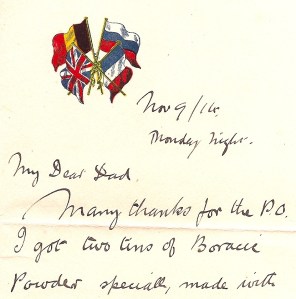 Nov 9/14.
Monday Night.
My Dear Dad.
Many thanks for the P.O.
I got two tins of Boracic
Powder specially made with